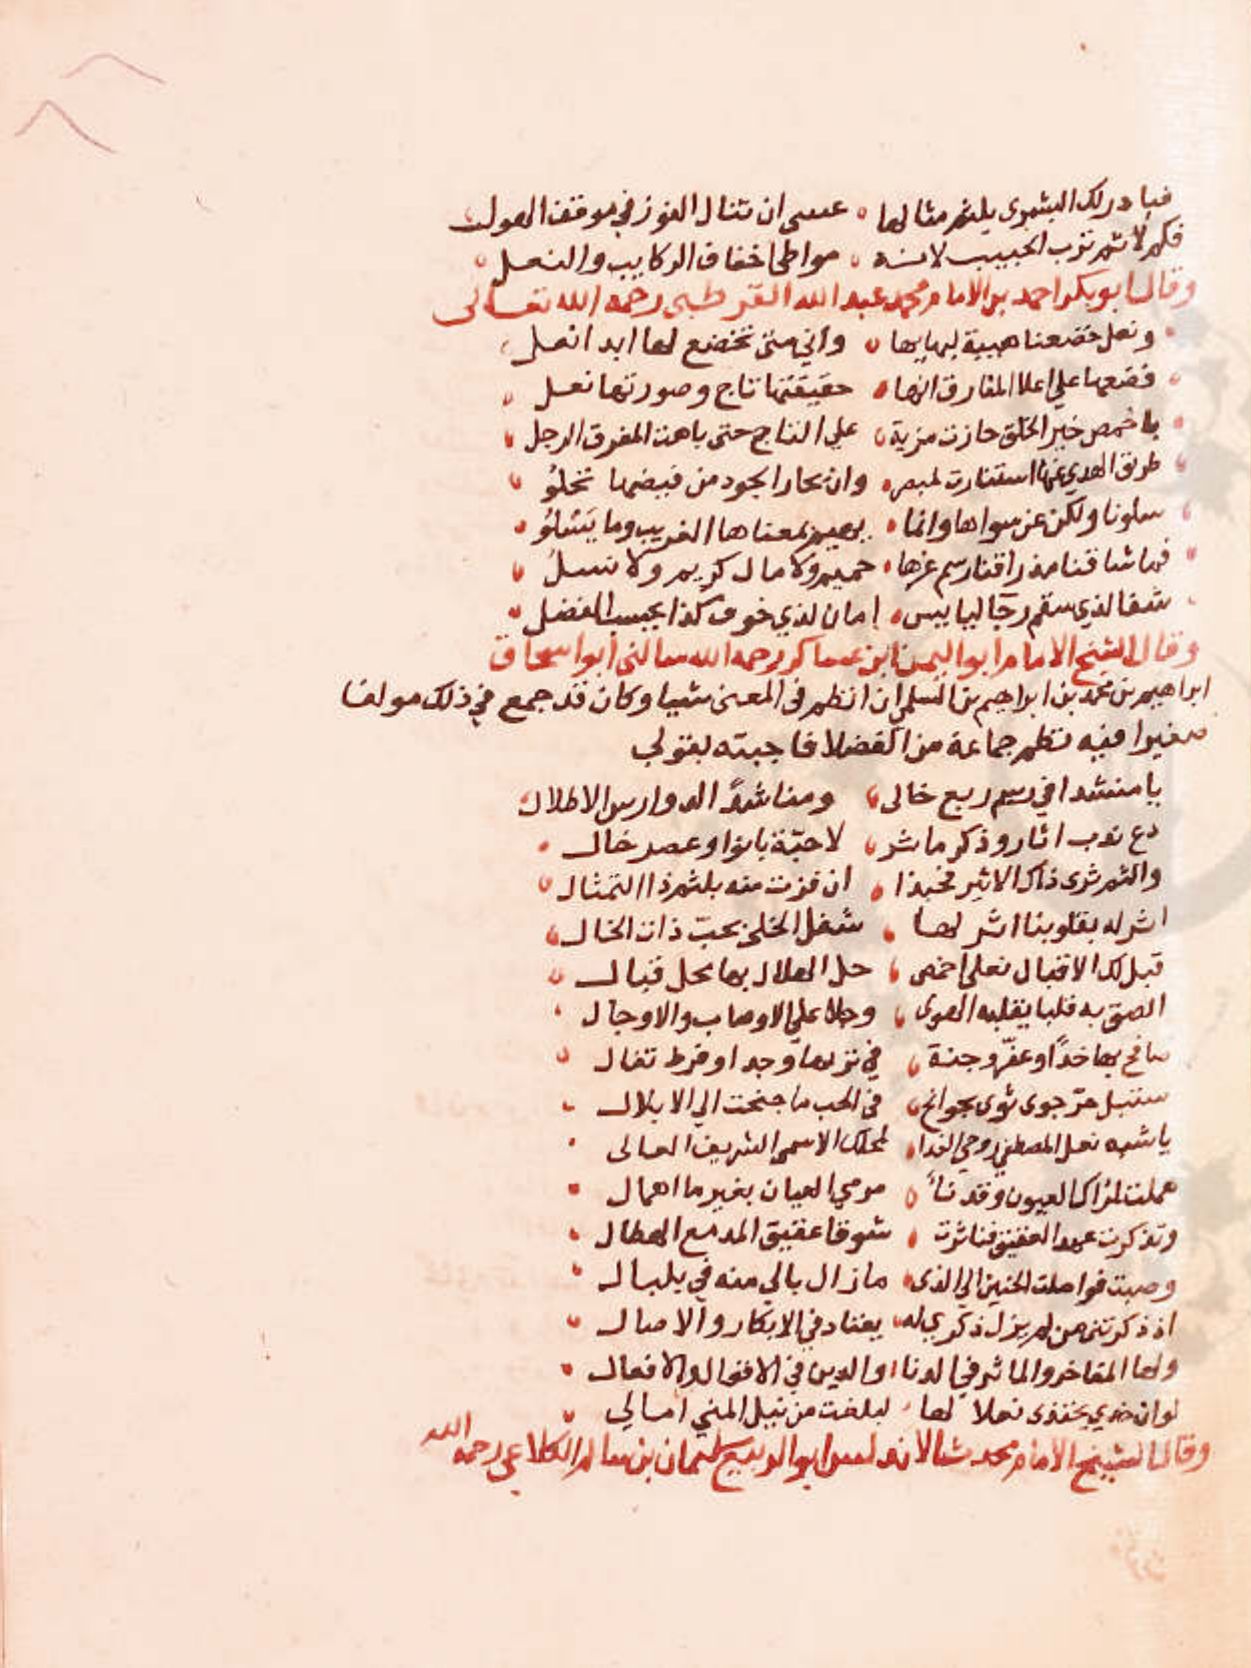 فبادر لك البشرى بلثم مثالها ، عسى ان تنال الفوز في موقف الهول
فكم لاثم ترب الحبيب لانه ، مواطي اخفاف الركايب والنعل
وقال ابو بكر احمد بن الامام محمد عبد الله القرطبي رحمه الله تعالى
ونعل خضعنا هيبة لبهايها ، واني متى نخضع لها ابدا نعل
فضعها علي اعلا المفارق انها ، حقيقتها تاج وصورتها نعل
باخمص خير الخلق حازت مزية ، علي التاج حتى باهت المفرق الرجل
طريق الهدي عنها استنارت لمبصر ، وان بحار الجود من فيضها تخلُوُ
سلونا ولكن عن سواها وانما ، يهيم بمعناها الغريب وما يَسْلوُ
فما شاقنا مذ راقنا رسم عزها ، حميم ولا مال كريم ولا نسلُ
شفا لذي سقم رجا لبايس ، امان لذي خوف كذا يحسب الفضل
وقال الشيخ الامام ابو اليمن ابن عساكر رحمه الله سالني ابو اسحاق
ابراهيم بن محمد بن ابراهيم بن السلمي ان انظم في المعنى شيا وكان قد جمع في ذلك مولفا
صغيرا فيه نظم جماعة من الفضلا فاجبته بقولي
يا منشدا في رسم ربع خالي ، ومناشدًا لدوارس الاطلال
دع ندب اثار وذكر ماثر ، لاحبّة بانوا وعصر خال
والثم ثرى ذاك الاثير فحبذا ، ان فزت منه بلثم ذا التمثال
اثر له بقلوبنا اثر لها ، شغل الخلي بحبّ ذات الخال
قبل لك الاقبال نعلي اخمص ، حل الهلال بها محل قبال
الصق به قلبا يقلبه الهوى ، وجلا علي الاوصاب والاوجال
صافح بها خدًا وعفّر وجنة ، في تربها وجدا وفرط تغال
سيبل حرّ جوى ثوى بجوانح ، في الحب ما جنحت الي الابلال
يا شبه نعل المصطفى روحي الفدا ، لمحلك الاسمى الشريف العالي
هملت لمراك العيون وقد نأى ، مرمي العيان بغير ما اهمال
وتذكرت عهد العقيق فناثرت ، شوقا عقيق المدمع الهطال
وصبت فواصلت الحنين الي الذى ، ما زال بالي منه في بلبال
اذ ذكرتني من لم يزل ذكري له ، يعتاد في الابكار والاصال
ولها المفاخر والماثر في الدنا ، والدين في الاقوال والافعال
لو ان خدي يحتذى نعلا لها ، لبلغت من نيل المني امالي
وقال الشيخ الامام محدث الاندلس ابو الربيع سليمان بن سالم الكلاعي رحمه الله